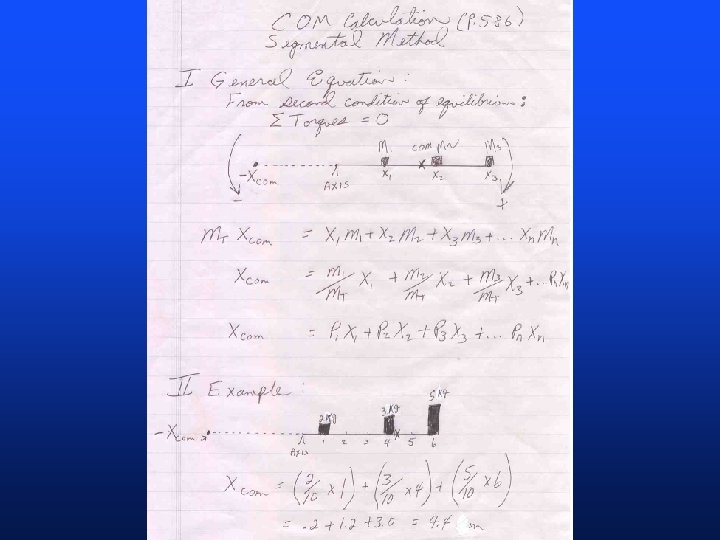 COM Calculation (P.586)
Segmental Method
I General Equation:
From second condition of equilibrium:
Σ Torques = 0
M1 COM M2 M3
-XCOM AXIS X1 X X2 X3
- +
MT XCOM = X1M1 + X2M2 + X3M3 + ... XnMn
XCOM = M1/MT X1 + M2/MT X2 + M3/MT X3 + ... PnXn
XCOM = P1X1 + P2X2 + P3X3 + ... PnXn
II Example:
5 Kg
2 Kg 3 Kg
-XCOM 1 2 3 4 X 5 6
AXIS
XCOM = (2/10 x 1) + (3/10 x 4) + (5/10 x 6)
= .2 + 1.2 + 3.0 = 4.4 cm